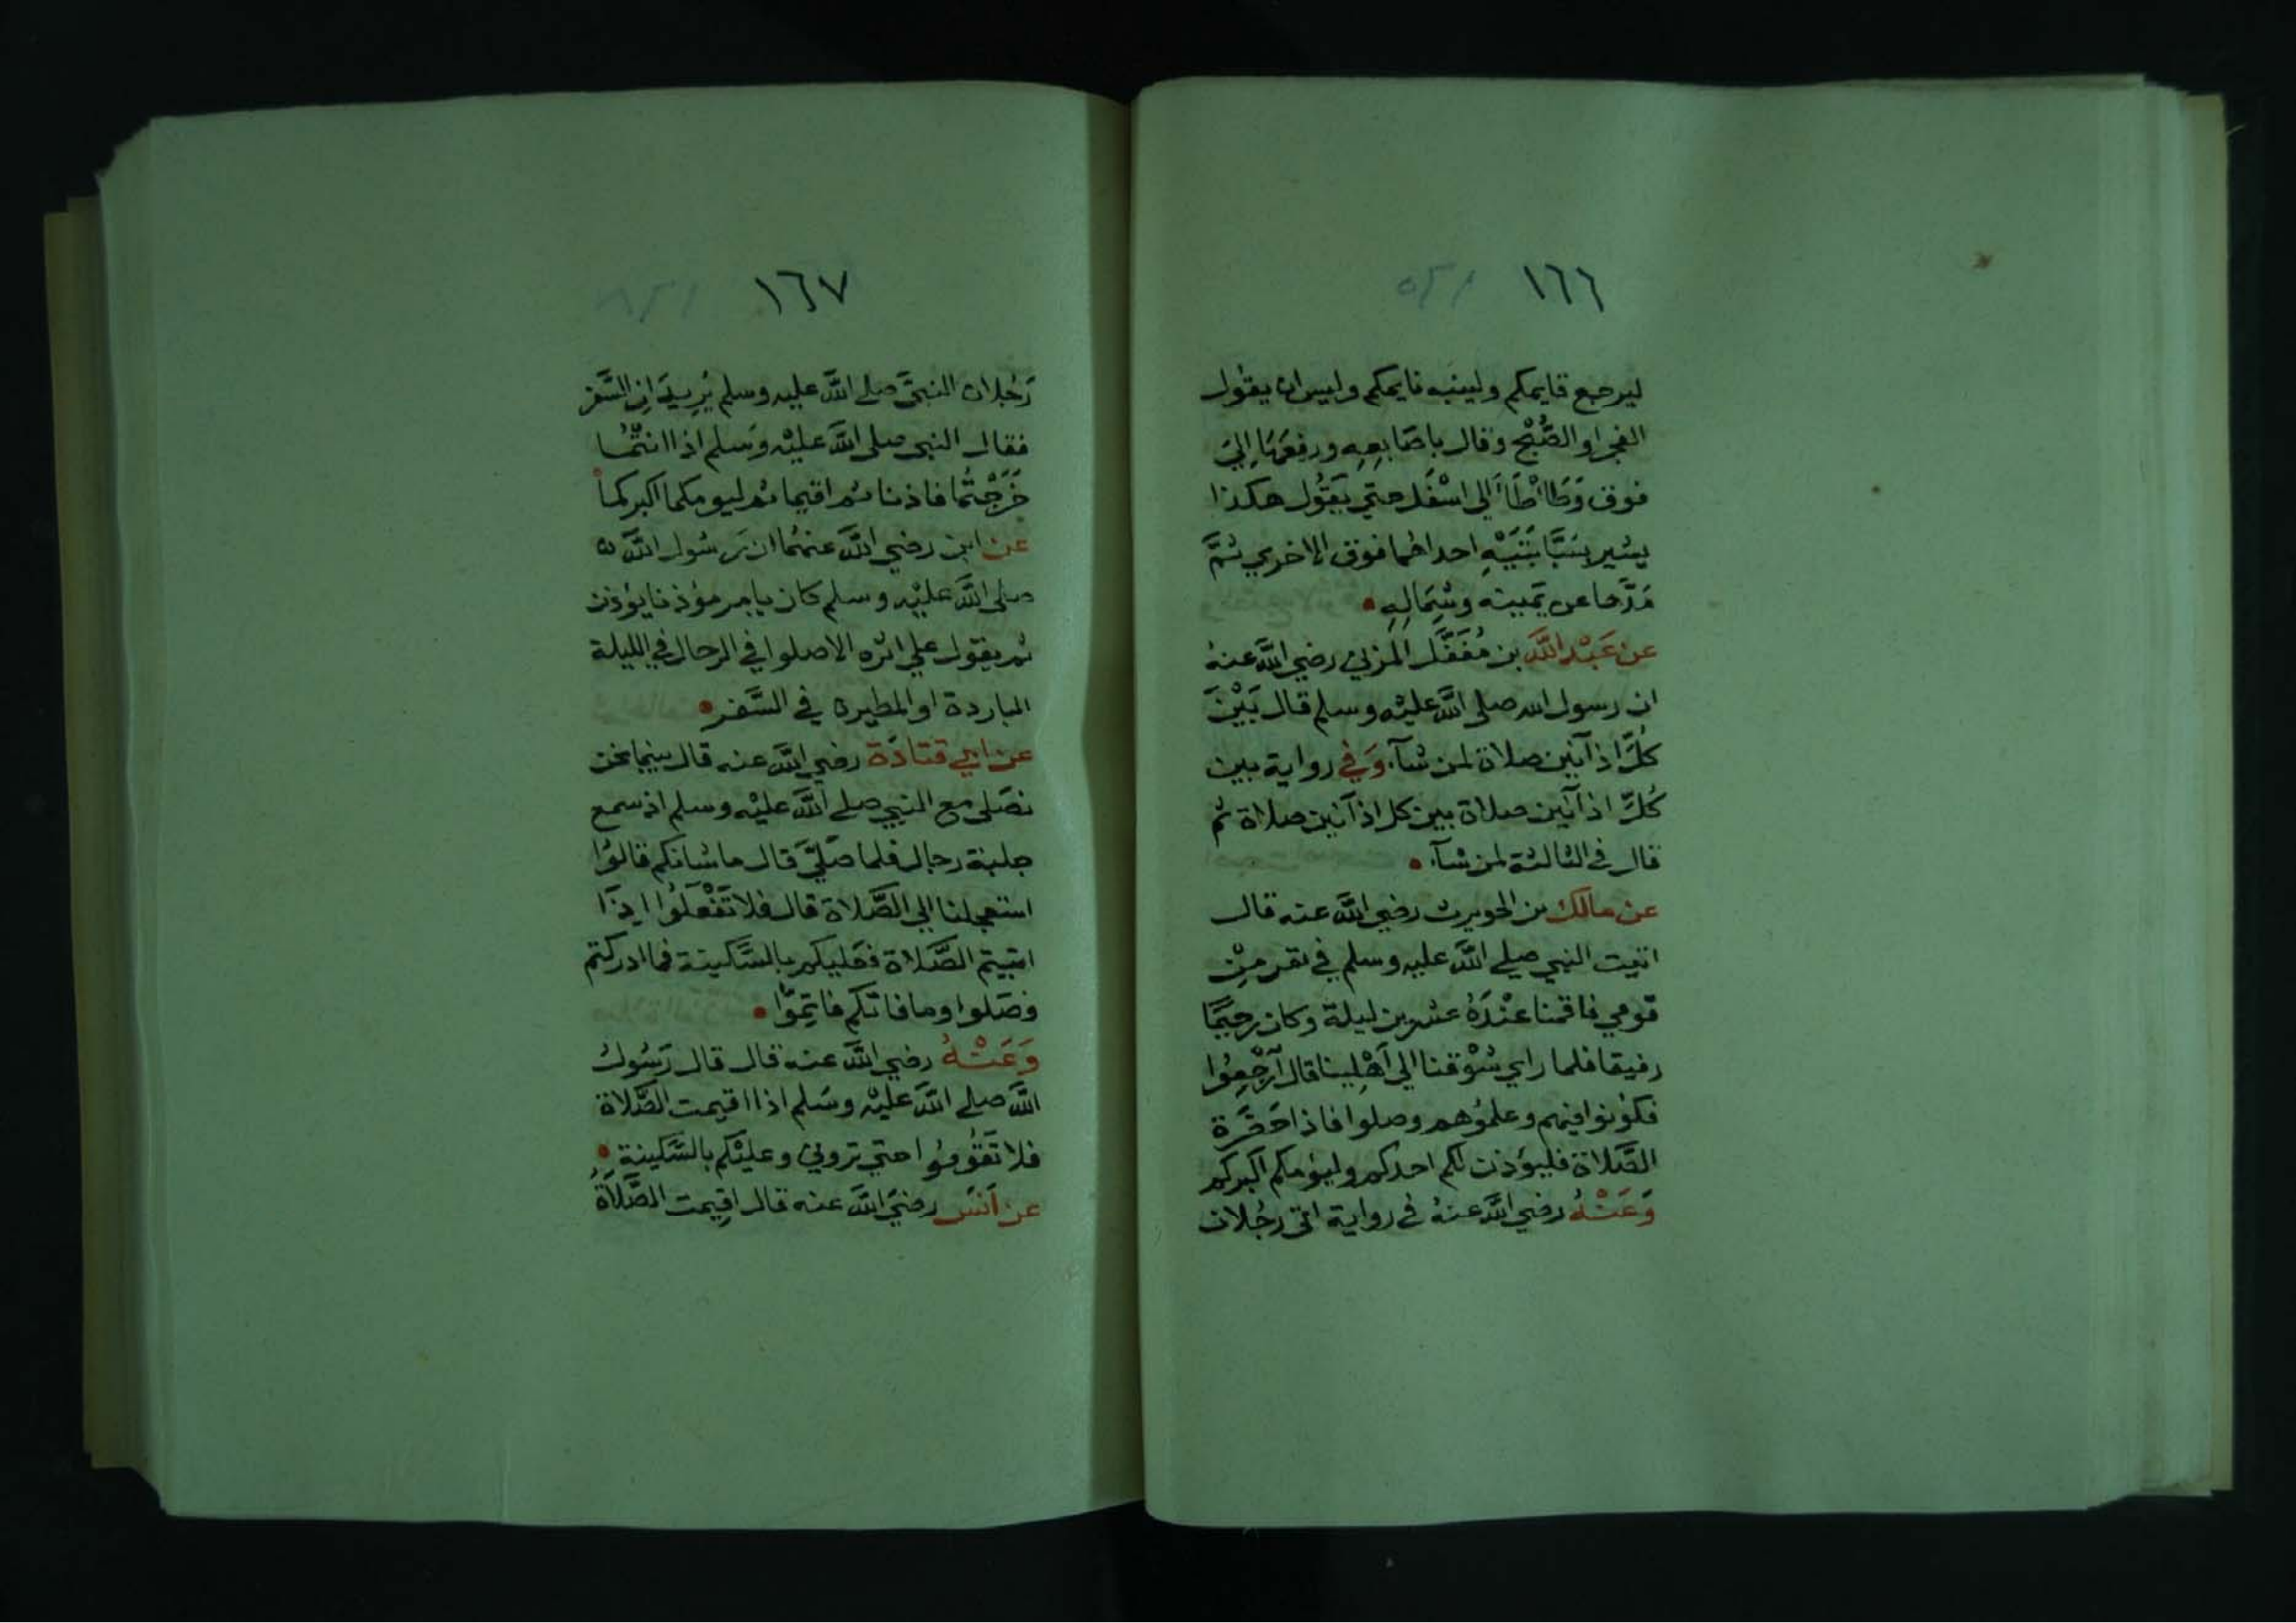 ١٦٦
ليرجع قايمكم ولينبه نايمكم وليس ان يقول
الفجر او الصُّبْح وقال باصَابعِهِ ورفعَهَا اِلىَ
فوق وَطَاأطَأَ الى اسْفَل حتي يَقُول هكذا
يشير بسَبَّابَتَيْهِ احداهما فوق الاخري ثمَّ
مَدَّها عن يَمينه وشِمَالِهِ
عن عَبْد اللَّه بن مُغَفَّل المزني رضي اللَّه عنهُ
ان رسول الله صلى اللَّه عليْه وسلم قال بَيْنَ
كلّ اذآنين صلاة لمن شآء وَفي رواية بين
كُلّ اذآنين صلاة بين كل اذآنين صلاة ثم
قال في الثالثة لمن شآء
عن مالك بن الحويرث رضي اللَّه عنه قال
اتيت النبي صلي اللَّه عليه وسلم في نفر مِنْ
قومي فاقمنا عنْدَهُ عشرين ليلة وكان رحيمًا
رفيقا فلما راي شوْقنا الي اَهْلِينا قال ارْجِعُوا
فكونوا فيهم وعلموُهم وصلوا فاذا حَضَرة
الصَّلاة فليؤذن لكم احدكم وليؤمكم اكبركم
وَعَنْهُ رضي اللَّه عنهُ في رواية اتي رجُلان
١٦٧
رَجُلان النبيَّ صلي اللَّه عليه وسلم يُرِيدَانِ السَّفر
فقال النبي صلى اللَّه عليْه وَسلم اذا انتُمَا
خَرَجْتُما فاذنا ثم اقيما ثم ليومكما اكبركما
عن ابن رضي اللَّه عنهُمَا ان رَسُول اللَّه
صلى اللَّه عليْه وسلم كان يامر مؤذنا يؤذن
ثم يقول علي اثره الا صلوا في الرحال في الليلة
الباردة او المطيرة في السَّفر
عن ابي قتادَة رضي اللَّه عنه قال بينما نحن
نصَلى مع النبي صلي اللَّه عليْه وسلم اذ سمع
جلبة رجال فلما صَلىَّ قال ما شانكم قالوُا
استعجلنا الي الصَّلاة قال فلا تَفْعَلُوا اِذَا
اتيتم الصَّلاة فعَليكم بالسَّكينة فما ادركتم
فصَلوا وما فاتكم فاتِموّا
وَعَنْهُ رضي اللَّه عنه قال قال رَسُول
اللَّه صلي اللَّه عليْه وسَلم اذا اقيمت الصَّلاة
فلا تَقُومُوا حتي تروني وعليْكم بالسَّكينة
عن اَنَس رضيَ اللَّه عنه قال اقِيمت الصَّلاَة